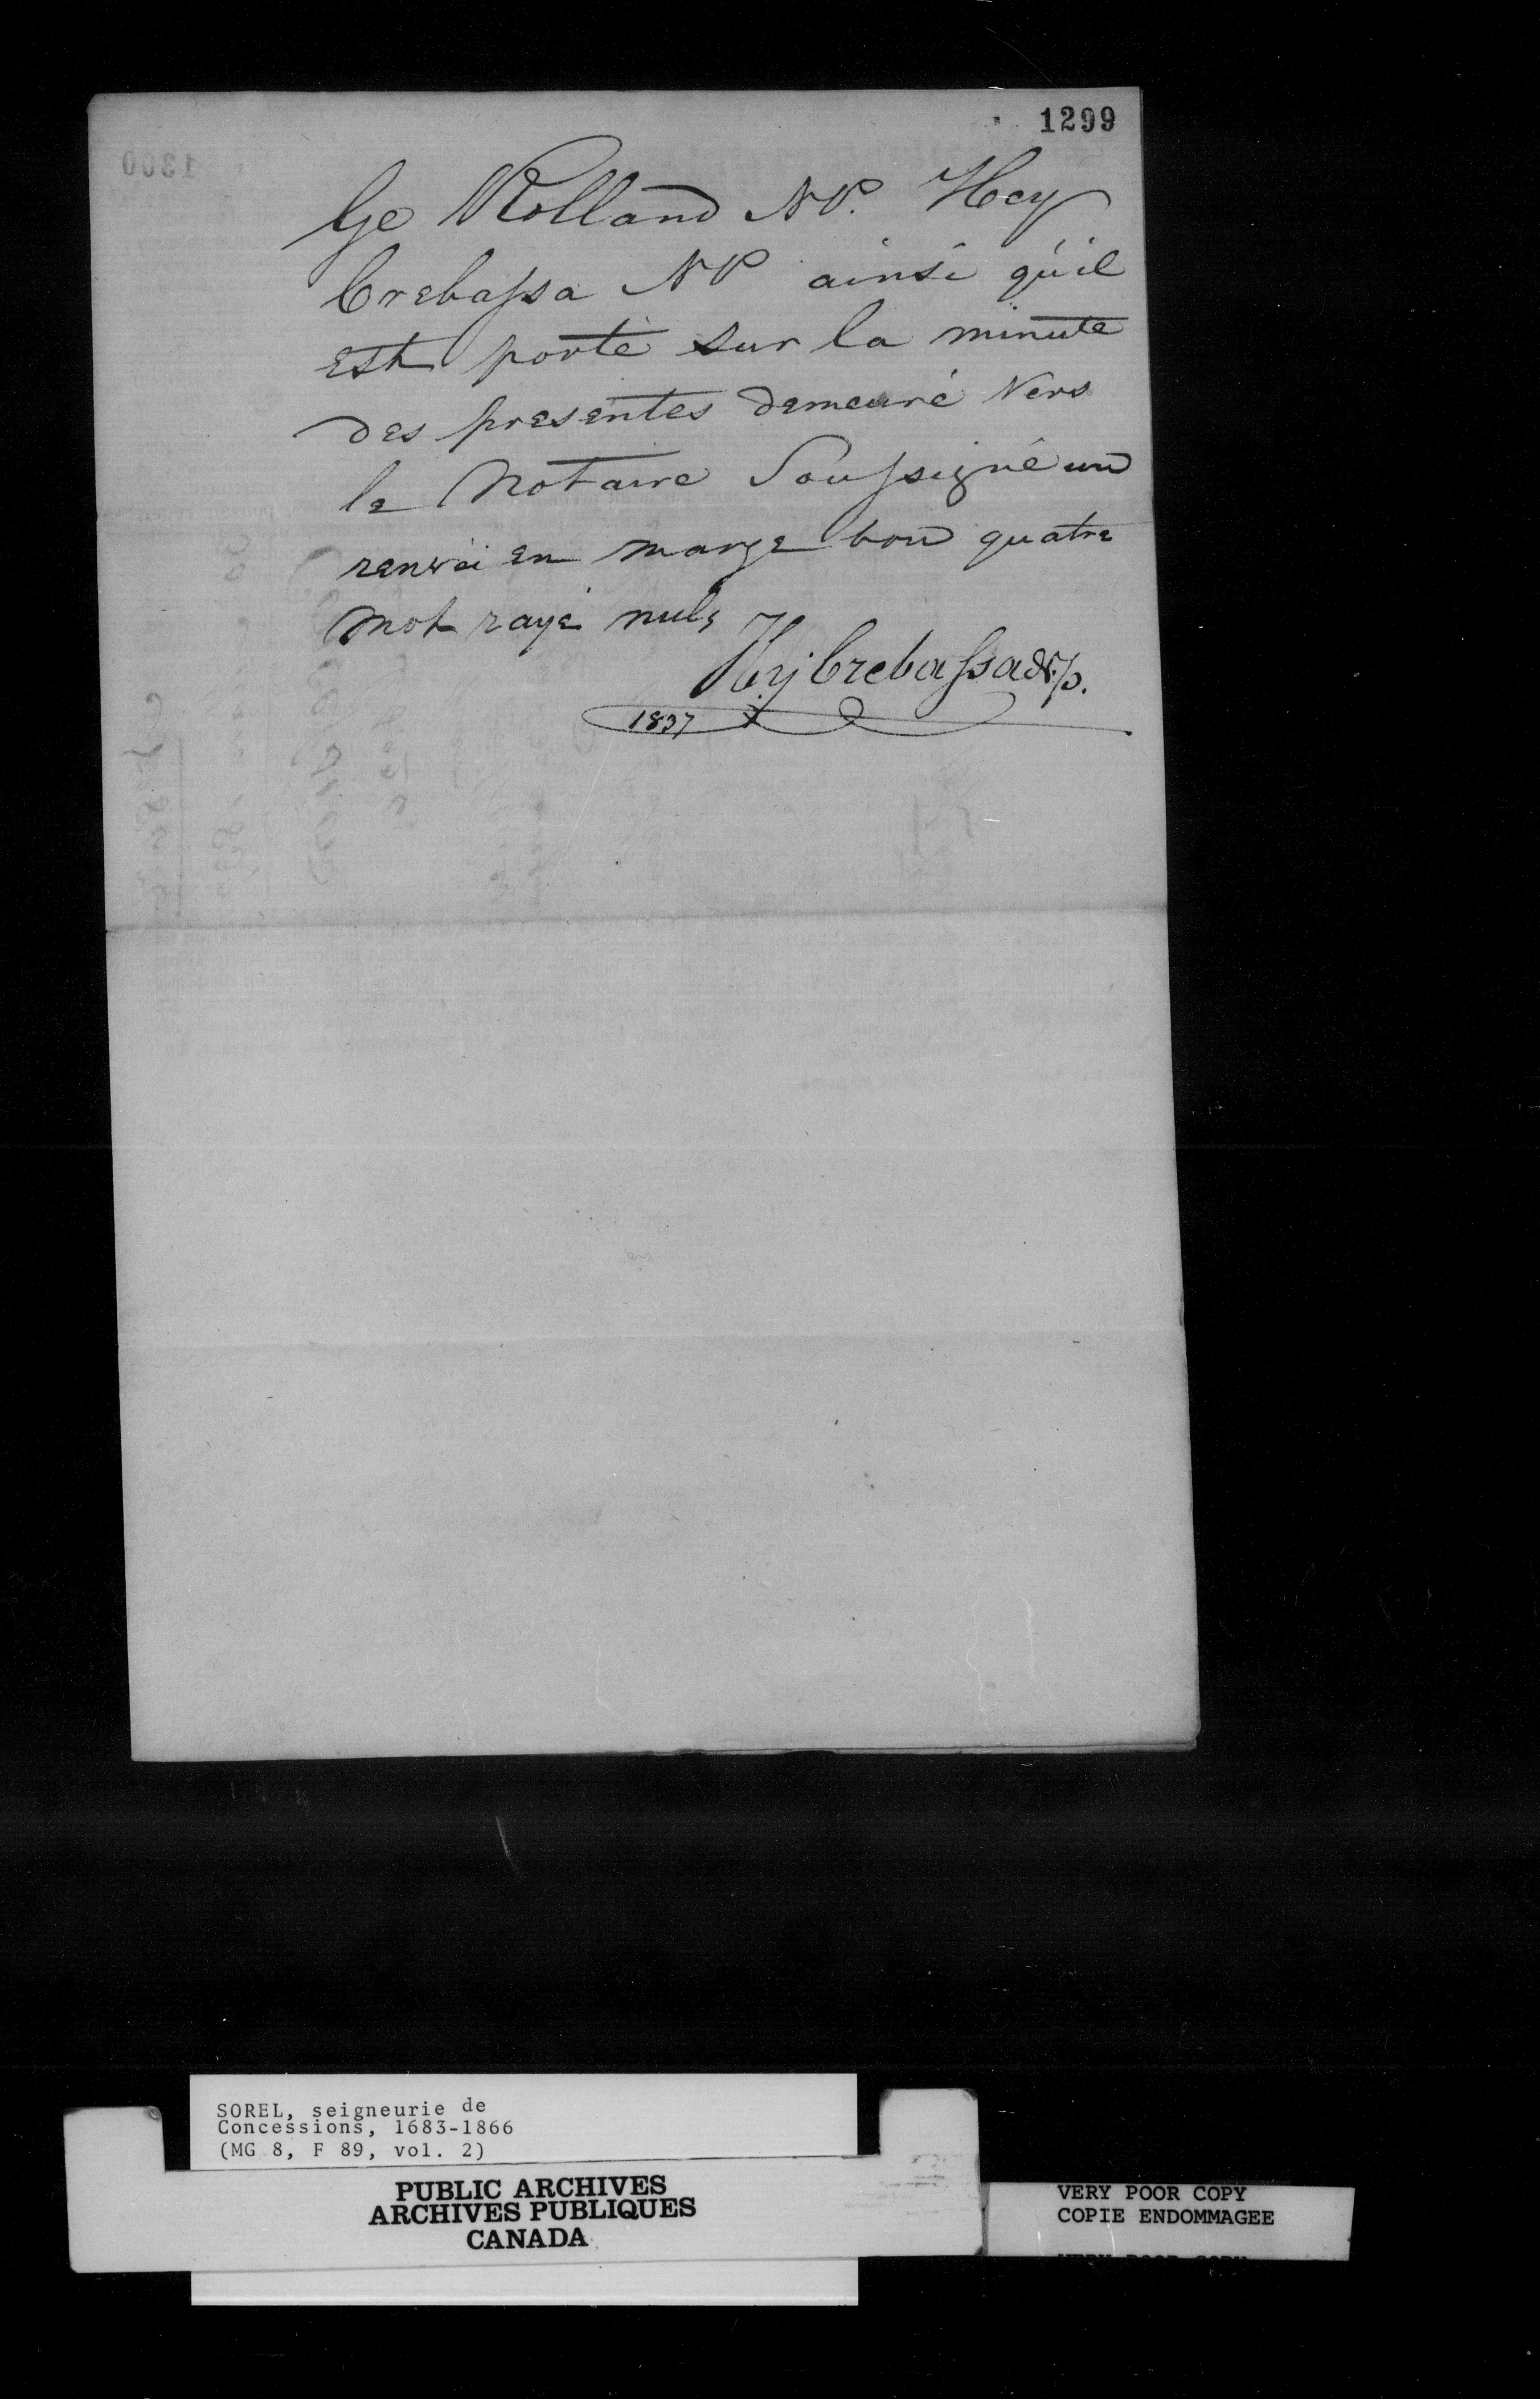 1299
Ge Rolland N.P. Hey
Crebassa NP ainsi qu'il
est porté sur la minute
des presentes demeuré vers
le Notaire Soussigné un
renvoi en marge bon quatre
mot rayé nuls
Hy Crebassa N.P.
1837
SOREL, seigneurie de
Concessions, 1683-1866
(MG 8, F 89, vol. 2)
PUBLIC ARCHIVES
ARCHIVES PUBLIQUES
CANADA
VERY POOR COPY
COPIE ENDOMMAGEE